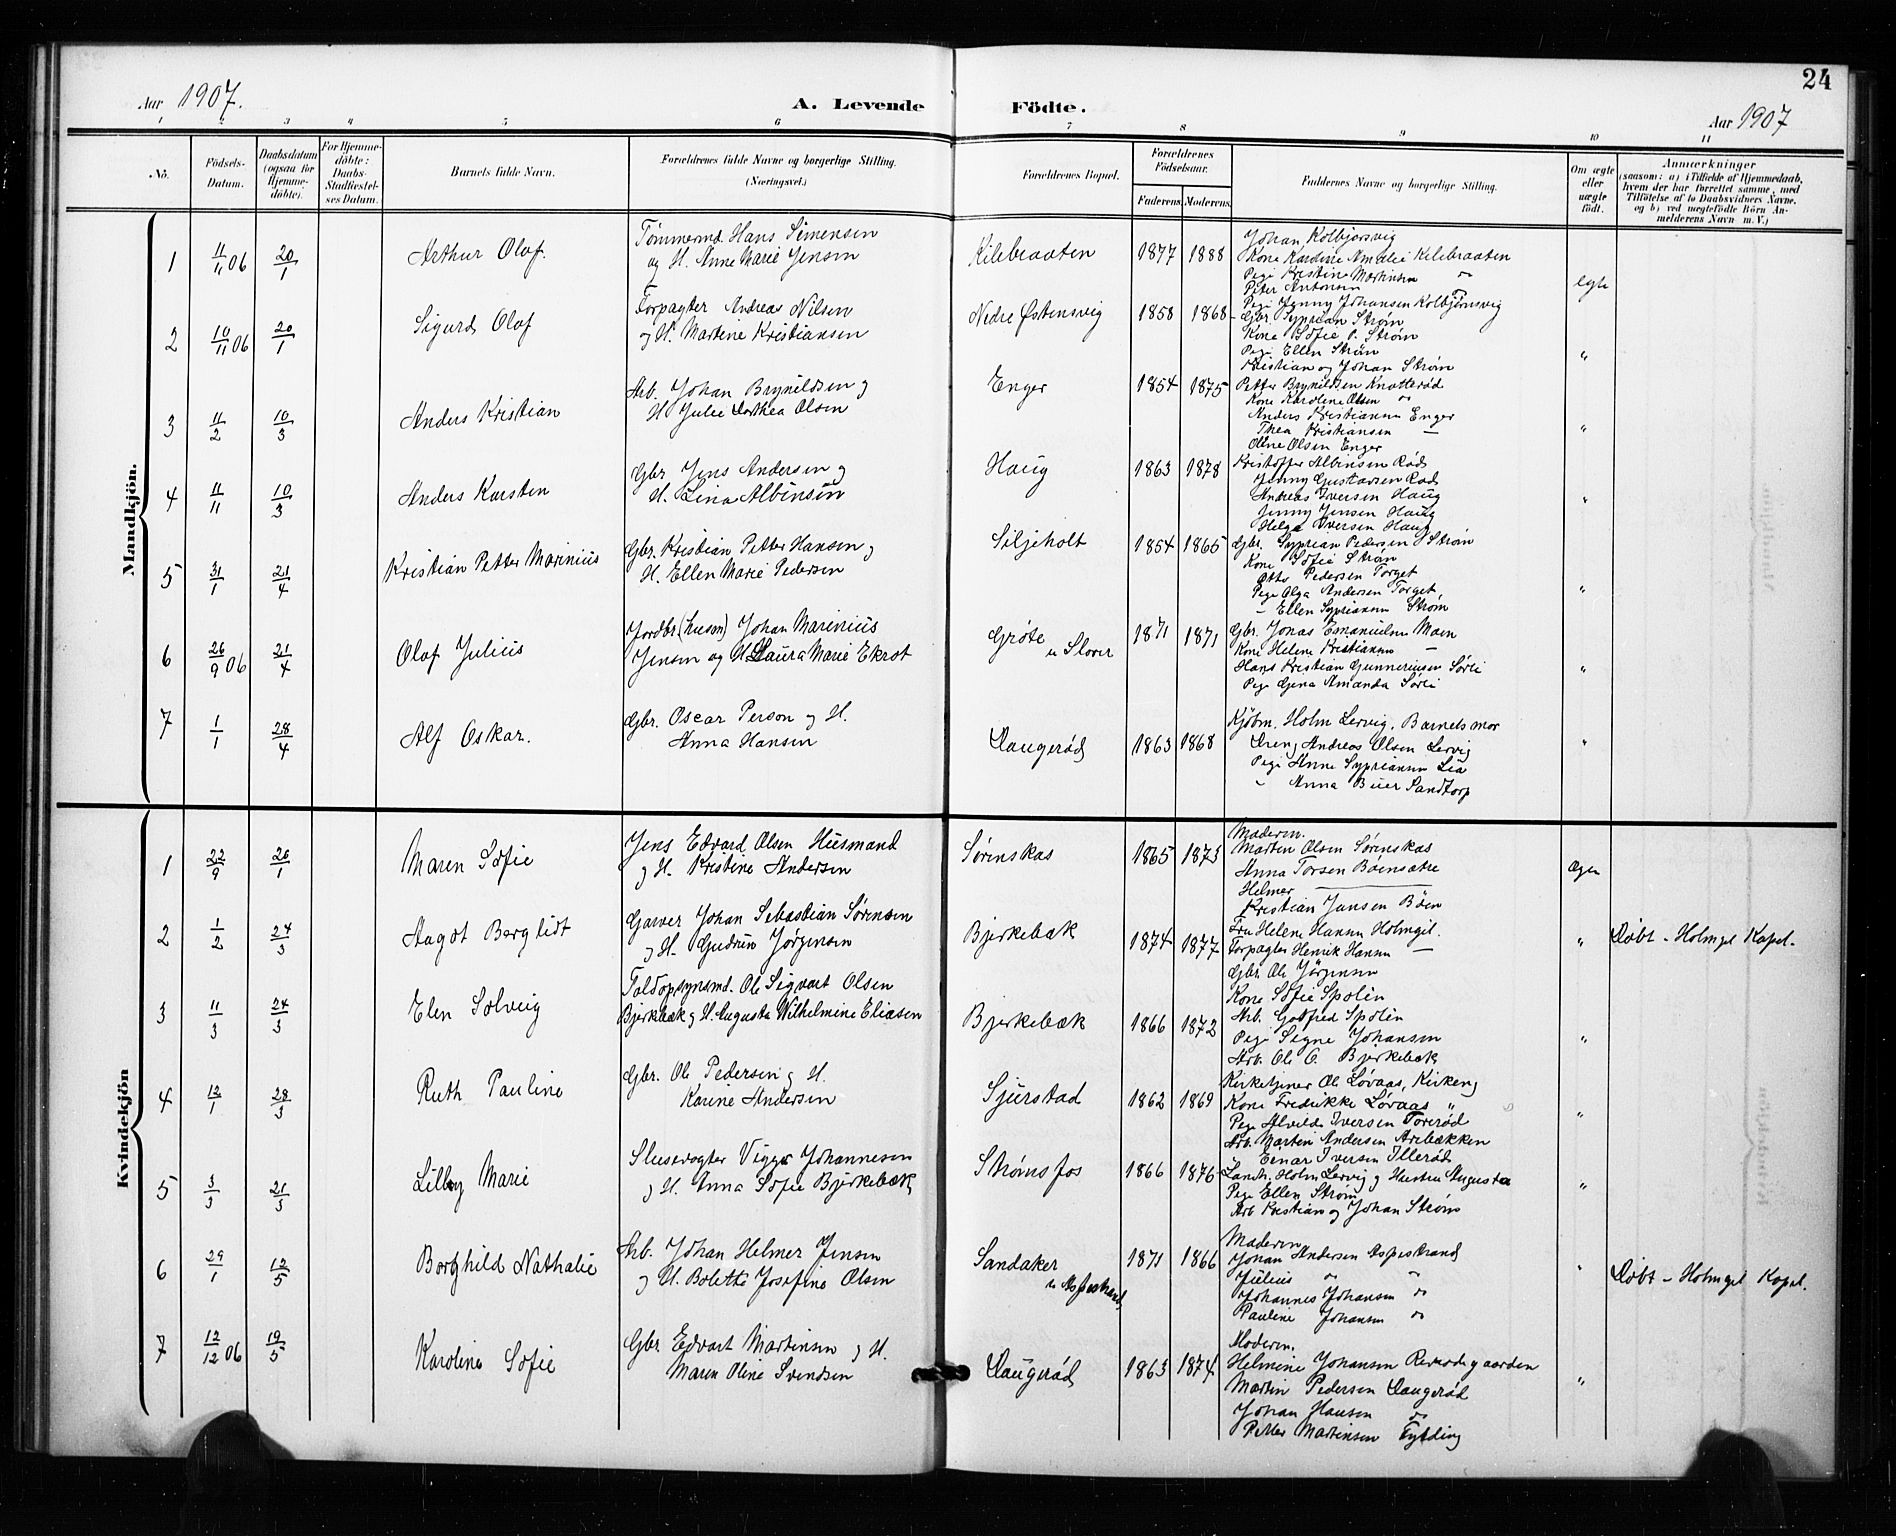 24
Aar 1907. A. Levende Födte. Aar 1907
1 2 3 4 5 6 7 8 9 10 11
No.
Födsels-Datum.
Daabsdatum (ogsaa for Hjemmedöbte).
For Hjemmedöbte: Daabs-Stadfæstelses Datum.
Barnets fulde Navn.
Forældrenes fulde Navne og borgerlige Stilling. (Næringsvei.)
Forældrenes Bopæl.
Forældrenes Födselsaar.
Faderens. Moderens.
Faddernes Navne og borgerlige Stilling.
Om ægte eller uægte födt.
Anmærkninger
(saasom: a) i Tilfælde af Hjemmedaab, hvem der har forrettet samme, med Tilföielse af to Daabsvidners Navne, og b) ved uægtefödte Börn Anmelderens Navn m. V.)
Mandkjön.
1 11/11 06 20/1 Arthur Olaf. Tømmermd. Hans Simensen
og H. Anne Marie Jensen
Kilebraaten 1877 1888
Johan Kolbjørsvig
Kone Karoline Amalie Kilebraaten
Pige Kristine Martinsen "
Peter Antonsen
Pige Jenny Johansen Kolbjørnsvig
ægte
2 10/11 06 20/1 Sigurd Olaf Forpagter Andreas Nilsen
og H. Martine Kristiansen
Nedre Østensvig 1858 1868
Gbr. Syprian Strøm
Kone Sofie P. Strøm
Pige Ellen Strøm
Kristian og Johan Strøm
"
3 11/2 10/3 Anders Kristian Arb. Johan Brynildsen og
H. Julie Dorthea Olsen
Enger 1854 1875
Petter Brynildsen Knatterød
Kone Karoline Olsen "
Anders Kristiansen Enger
Thea Kristiansen —
Oline Olsen Enger
"
4 11/11 10/3 Anders Karsten Gbr. Jens Andersen og
H. Lina Albinsen
Haug 1863 1878
Kristoffer Albinsen Rød
Jenny Gustavsen Rød
Andreas Iversen Haug
Jenny Jensen Haug
Helga Iversen Haug
"
5 31/1 21/4 Kristian Petter Marinius Gbr. Kristian Petter Hansen og
H. Ellen Marie Pedersen
Siljeholt 1854 1865
Gbr. Syprian Pedersen Strøm
Kone Sofie Strøm
Otto Pedersen Torget
Pige Olga Andersen Torget,
— Ellen Sypriansen Strøm
"
6 26/9 06 21/4 Olaf Julius Jordbr. Johan Marinius
Jensen og H. Laura Marie Ekrot
Grøte
u Slorer 1871 1871
Gbr. Jonas Emanuelsen Moen
Kone Helene Kristiansen —
Hans Kristian Gunneriusen Sørli
Pige Gina Amanda Sørli
"
7 1/1 28/4 Alf Oskar. Gbr. Oscar Person og H.
Anna Hansen
Daugerød 1863 1868
Kjøbm. Holm Lervig, Barnets mor
Dreng Andreas Olsen Lervig
Pige Anne Sypriansen Lia
— Anna Buer Sandtorp
"
Kvindekjön
1 22/9 26/1 Maren Sofie Jens Edvard Olsen Husmand
og H. Kristine Andersen
Sørenskas 1865 1873
Moderen.
Martin Olsen Sørenskas
Anna Torsen Bøensætre
Helmer ——
Kristian Jansen Bøen
ægte
2 1/2 24/3 Aagot Bergliot Garver Johan Sebastian Sørensen
og H. Gudrun Jørgensen
Bjerkebæk 1874 1877
Fru Helene Hansen Holmgil.
Forpagter Henrik Hansen —
Gbr. Ole Jørgensen
" Døbt - Holmgil Kapel.
3 11/3 24/3 Elen Solveig Toldopsynsmd. Ole Sigvart Olsen
Bjerkbæk og H. Augusta Wilhelmine Eliasen
Bjerkebæk 1866 1872
Kone Sofie Spolén
Arb. Gotfred Spolén
Pige Signe Johansen
Arb. Ole O. Bjerkebæk
"
4 12/1 28/3 Ruth Pauline Gbr. Ole Pedersen og H.
Karine Andersen
Sjurstad 1862 1869
Kirketjener Ole Løvaas, Kirkeng
Kone Fredrikke Løvaas "
Pige Alvilde Iversen Torerød
Arb. Martin Andersen Arebækken
Einar Iversen Illerød
"
5 3/3 21/5 Lilly Marie Slusevogter Viggo Johannesen
og H. Anna Sofie Bjerkebæk
Strømsfos 1866 1876
Landh. Holm Lervig og Hustru Augusta
Pige Ellen Strøm
Arb Kristian og Johan Strøm
"
6 29/1 12/5 Borghild Nathalie Arb. Johan Helmer Jensen
og H. Bolette Josefine Olsen
Sandaker
u Aspestrand 1871 1866
Moderen
Johan Andersen Aspestrand
Julius " "
Johannes Johansen "
Pauline Johansen "
" Døbt - Holmgil Kapel.
7 12/12 06 19/5 Karoline Sofie Gbr. Edvart Martinsen og H.
Maren Oline Svendsen
Daugerød 1863 1874
Moderen.
Helmine Johansen
Martin Pedersen Daugerød
Johan Hansen "
Petter Martinsen
"